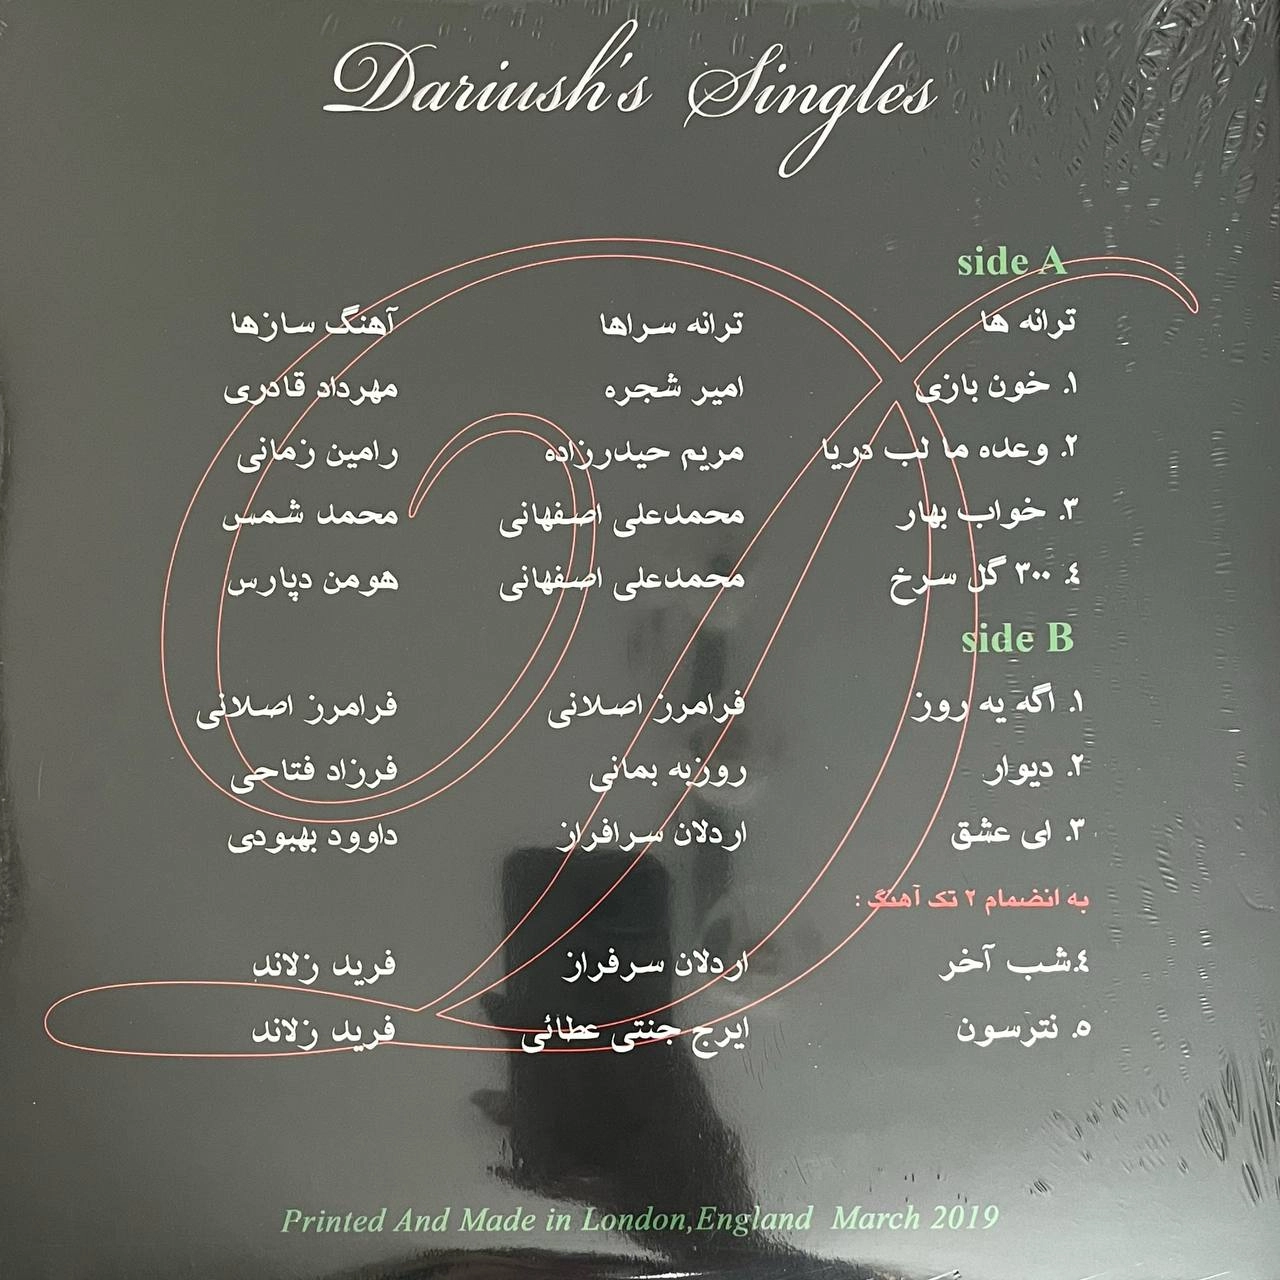 Dariush's Singles
side A
ترانه ها ترانه سراها آهنگ سازها
۱. خون بازی امیر شجره مهرداد قادری
۲. وعده ما لب دریا مریم حیدرزاده رامین زمانی
۳. خواب بهار محمدعلی اصفهانی محمد شمس
٤. ۳۰۰ گل سرخ محمدعلی اصفهانی هومن دپارس
side B
۱. اگه یه روز فرامرز اصلانی فرامرز اصلانی
۲. دیوار روزبه بمانی فرزاد فتاحی
۳. ای عشق اردلان سرافراز داوود بهبودی
به انضمام ۲ تک آهنگ :
٤.شب آخر اردلان سرفراز فرید زلاند
۵. نترسون ایرج جنتی عطائی فرید زلاند
Printed And Made in London,England March 2019